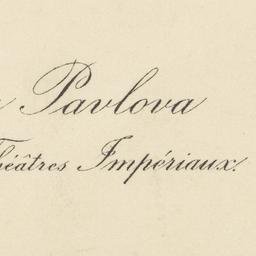 Pavlova
Théâtres Impériaux.